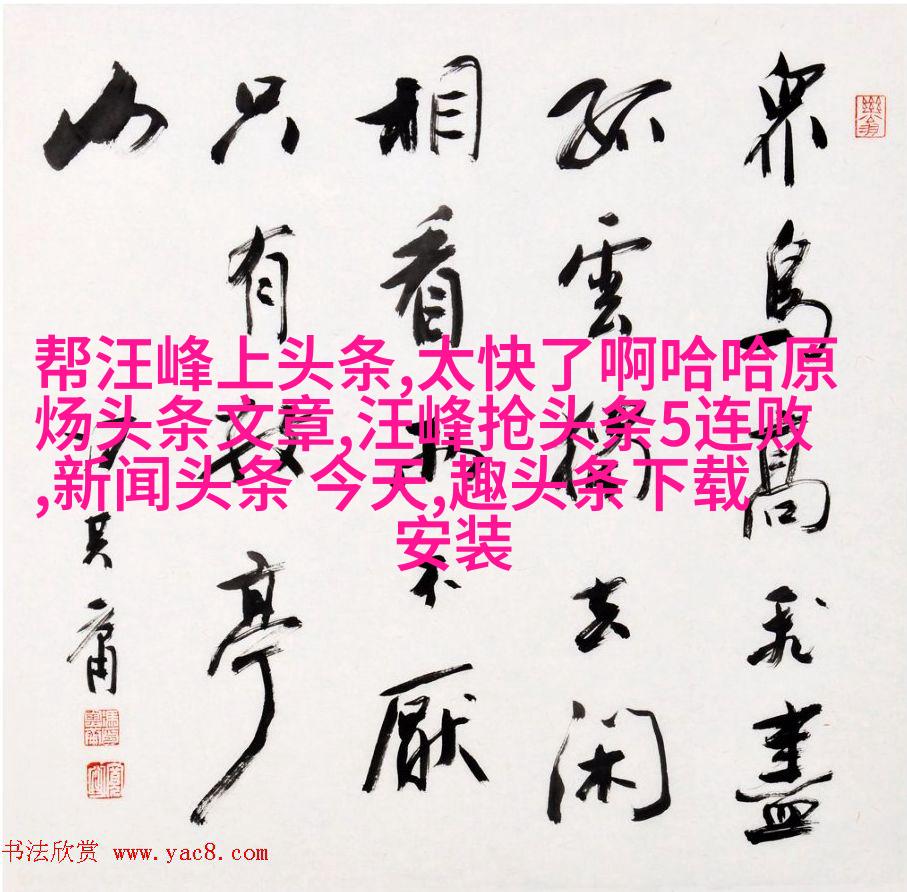 眾鳥高飛盡
孤雲獨去閑
相看兩不厭
只有敬亭
山
其庸
帮汪峰上头条,太快了啊哈哈原
炀头条文章,汪峰抢头条5连败
,新闻头条 今天,趣头条下载
安装
书法欣赏 www.yac8.com